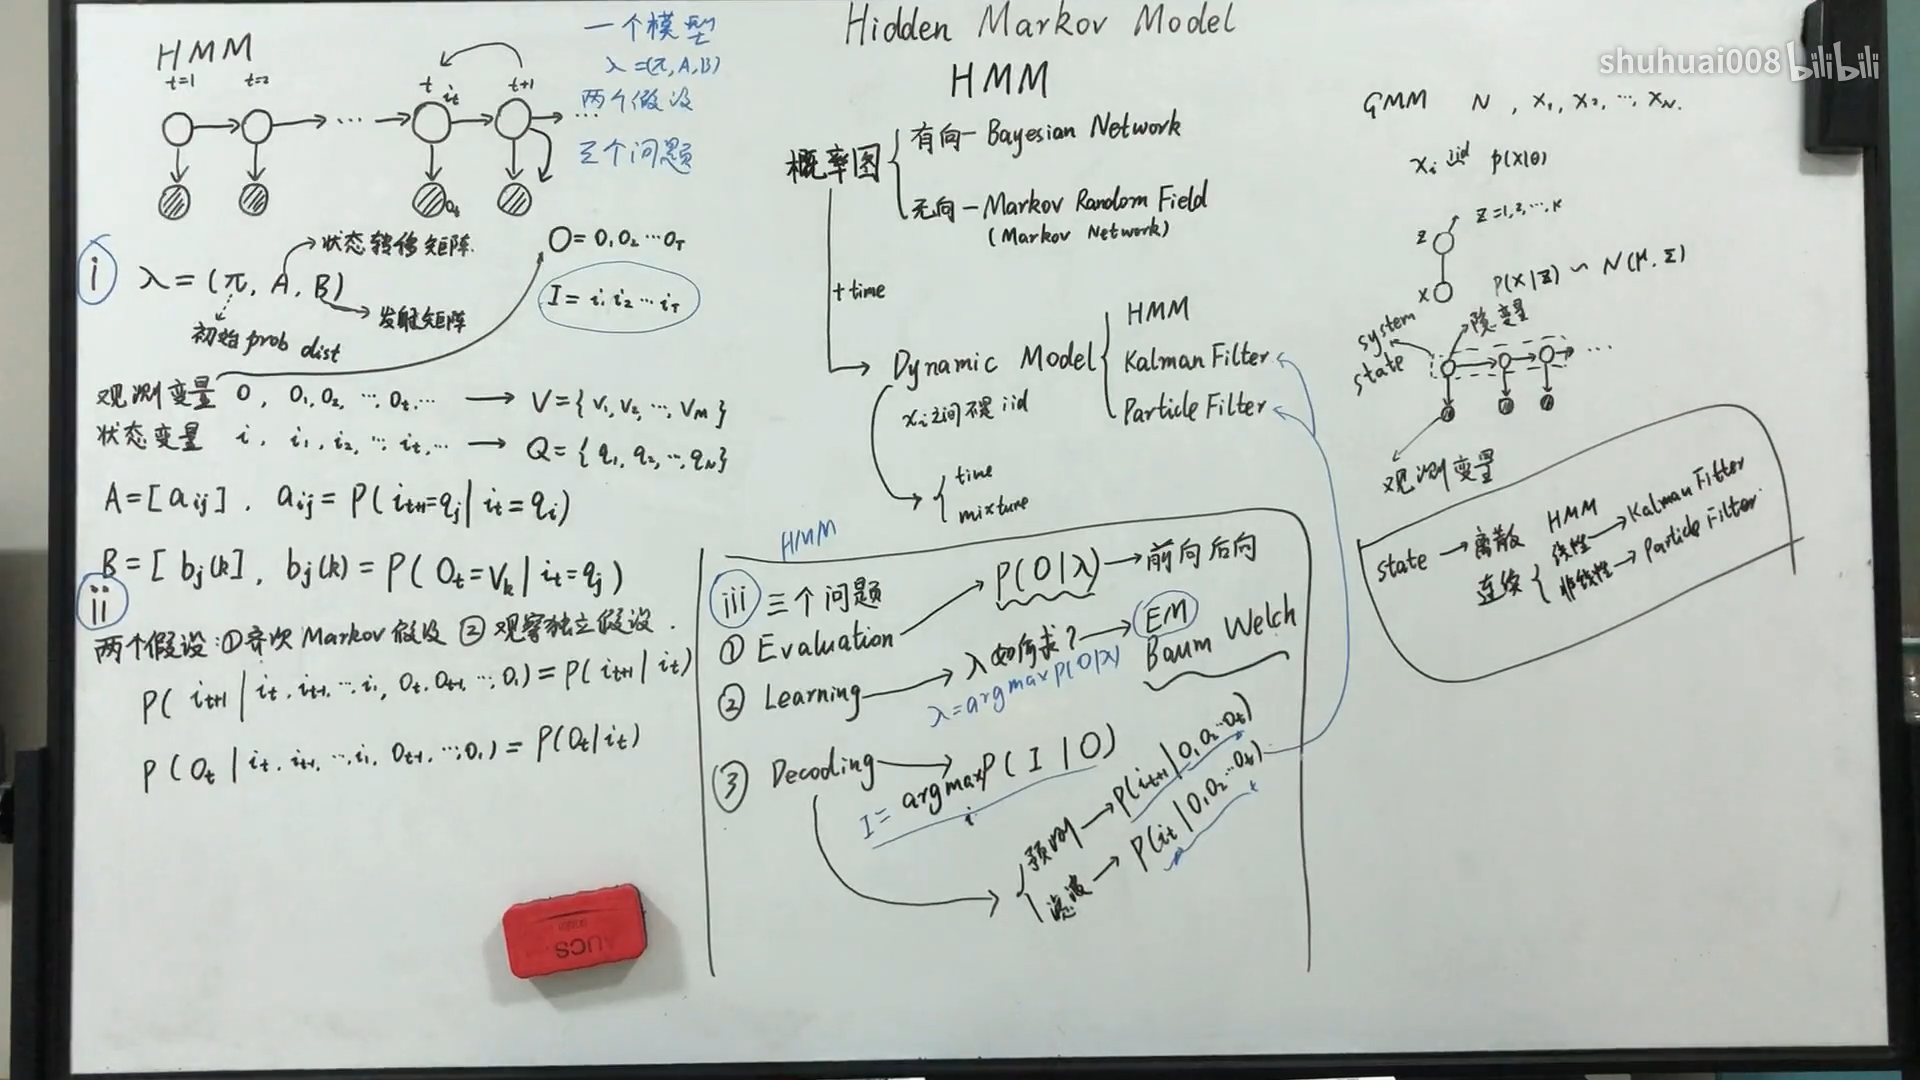 Hidden Markov Model
HMM
shuhuai008 bilibili
HMM
t=1 t=2 t t+1
i_t
o_t
一个模型
λ=(π, A, B)
两个假设
三个问题
i
λ = (π, A, B)
状态转移矩阵
发射矩阵
初始prob dist
O = o₁o₂ ⋯ o_T
I = i₁i₂ ⋯ i_T
观测变量 o, o₁, o₂, ⋯, o_t, ⋯ → V = {v₁, v₂, ⋯, v_M}
状态变量 i, i₁, i₂, ⋯ i_t, ⋯ → Q = {q₁, q₂, ⋯, q_N}
A = [a_ij], a_ij = P(i_{t+1}=q_j | i_t = q_i)
B = [b_j(k)], b_j(k) = P(o_t = v_k | i_t = q_j)
ii
两个假设: ① 齐次 Markov 假设 ② 观察独立假设.
P(i_{t+1} | i_t, i_{t-1}, ⋯, i₁, o_t, o_{t-1}, ⋯, o₁) = P(i_{t+1} | i_t)
P(o_t | i_t, i_{t-1}, ⋯, i₁, o_{t-1}, ⋯, o₁) = P(o_t | i_t)
概率图
有向 - Bayesian Network
无向 - Markov Random Field
(Markov Network)
+ time
Dynamic Model
HMM
Kalman Filter
Particle Filter
x_i之间不是iid
time
mixture
HMM
iii 三个问题
① Evaluation → P(O|λ) → 前向后向
② Learning → λ如何求? → EM
Baum Welch
λ = argmax P(O|λ)
③ Decoding → I = argmax P(I | O)
i
预测 → P(i_{t+1} | o₁, o₂ ⋯ o_t)
滤波 → P(i_t | o₁, o₂ ⋯ o_t)
GMM N, x₁, x₂, ⋯, x_N.
x_i iid p(x|θ)
z z=1,2,⋯,k
x P(x|z) ~ N(μ, Σ)
system state
隐变量
观测变量
state → 离散 HMM
连续 线性 → Kalman Filter
非线性 → Particle Filter
AUCS